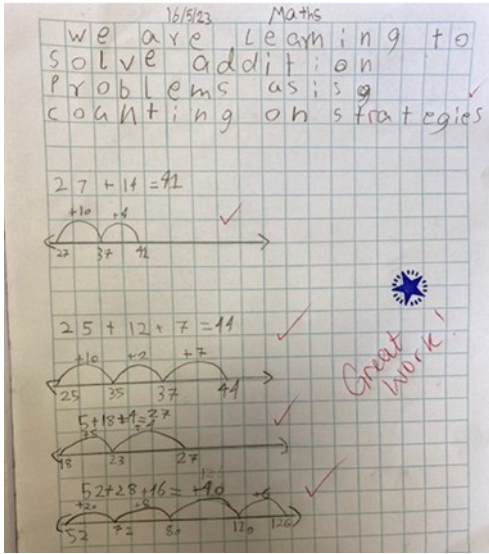 16/5/23 Maths
we are Learning to
solve addition
Problems asisg
counting on strategies
27 + 14 = 41
+10 +4
27 37 41
25 + 12 + 7 = 44
+10 +2 +7
25 35 37 44
Great
work!
5 + 18 + 4 = 27
+5 +4
18 23 27
52 + 28 + 46 =
+20 +8 +40 +6
52 72 80 120 126